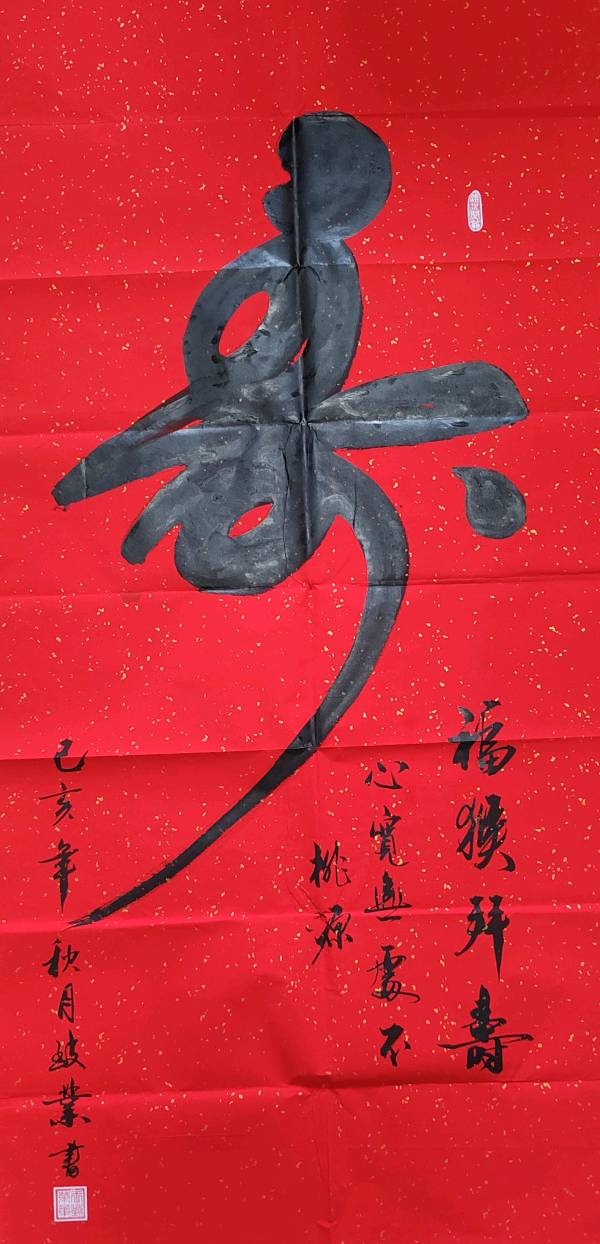 寿
福猴拜壽
心寬無處不
桃源
己亥年秋月業書